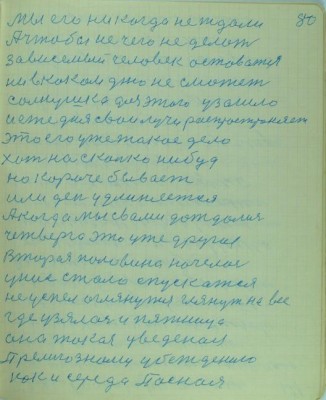 80
Мы его никогда не ждали
А чтобы нечего не делат
зависемый человек остоватся
ни в каком дню не сможет
солнушка для этого узашло
и етедня свои лучи
это его уже такое дело
хот на сколко нибуд
но короче бывает
или ден удлиняется
А когда мы с вами дождалис
четверго это уже другая
Вторая половина ночелас
у нис стало опускатся
не успел оглянутся глянут не все
где узялас и пятница
она такая уведеная
Прелигозному убеждению
как и середа Посная